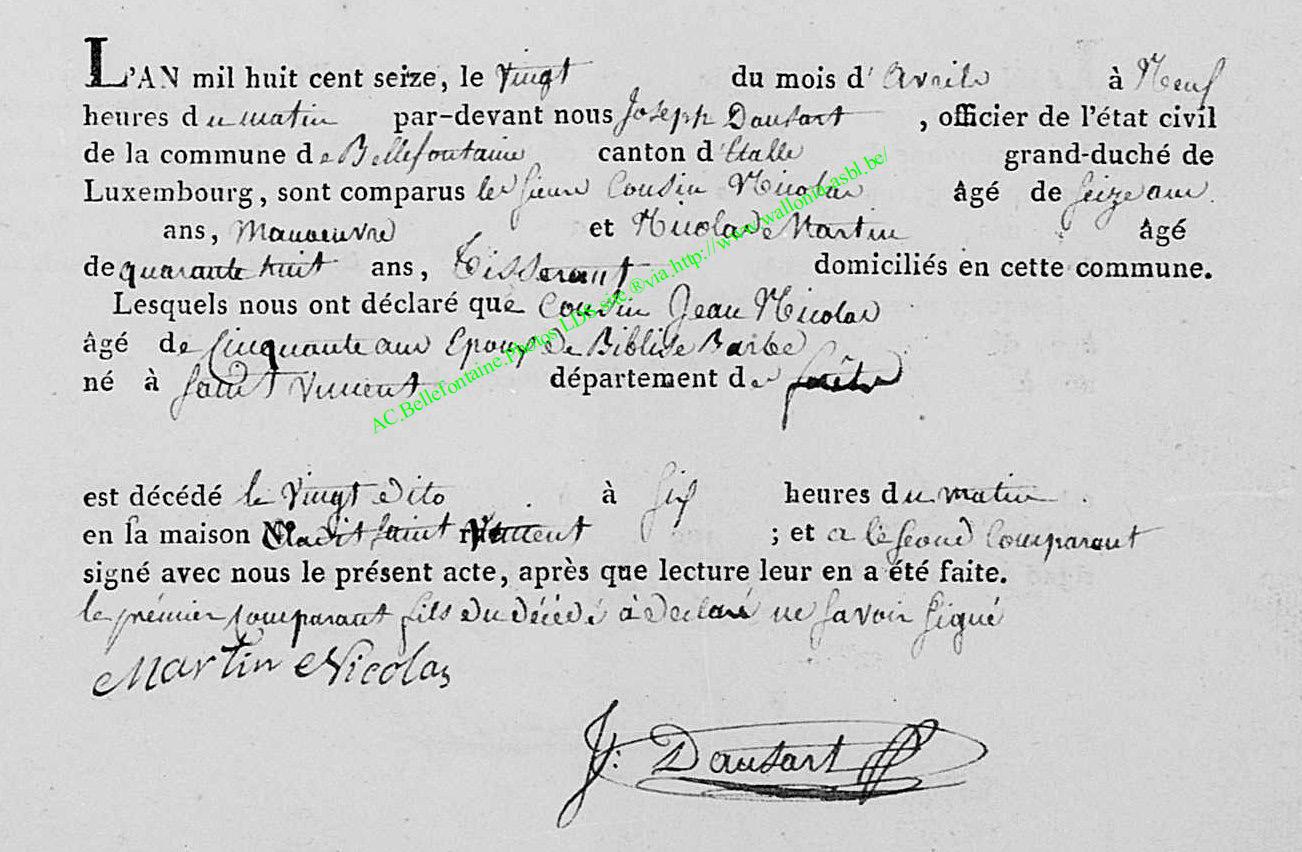 L'AN mil huit cent seize, le Vingt du mois d'avril à Neuf
heures du matin par-devant nous Joseph Dausart, officier de l'état civil
de la commune de Bellefontaine canton d'Etalle grand-duché de
Luxembourg, sont comparus les sieurs Cousin Nicolas âgé de seize ans
ans, Manoeuvre et Nicolas Martin âgé
de quarante huit ans, Tisserant domiciliés en cette commune.
Lesquels nous ont déclaré que Cousin Jean Nicolas
âgé de Cinquante ans Epoux de Biblise Barbe
né à Saint Vincent département de
est décédé le Vingt dito à six heures du matin.
en sa maison saint ; et a le second Comparant
signé avec nous le présent acte, après que lecture leur en a été faite.
le prémier comparant fils du décédé à declaré ne savoir signé
Martin Nicolas
J: Dausart
AC.Bellefontaine.Photos.LDS.site.®via.http://www.wallonia-asbl.be/